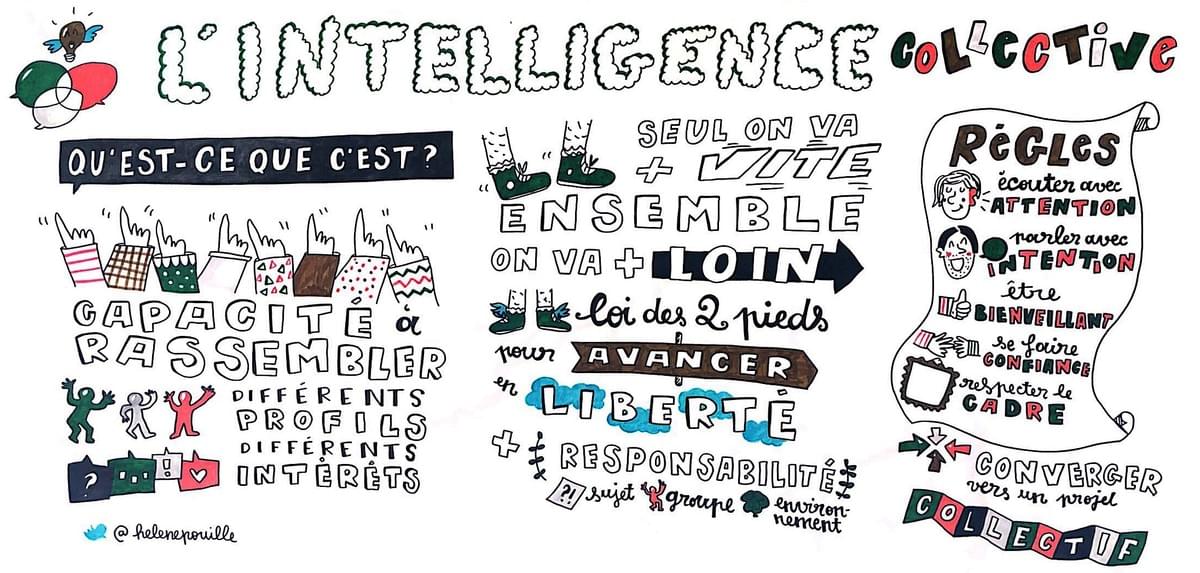 L'INTELLIGENCE COLLECTIVE
QU'EST-CE QUE C'EST ?
CAPACITÉ à
RASSEMBLER
DIFFÉRENTS
PROFILS
DIFFÉRENTS
INTÉRÊTS
?
...
!
@helenepouille
SEUL ON VA
+ VITE
ENSEMBLE
ON VA + LOIN
loi des 2 pieds
pour AVANCER
en LIBERTÉ
+ RESPONSABILITÉ
?! sujet groupe environ-
nement
RÈGLES
écouter avec
ATTENTION
parler avec
INTENTION
être
BIENVEILLANT
se faire
CONFIANCE
respecter le
CADRE
CONVERGER
vers un projet
COLLECTIF